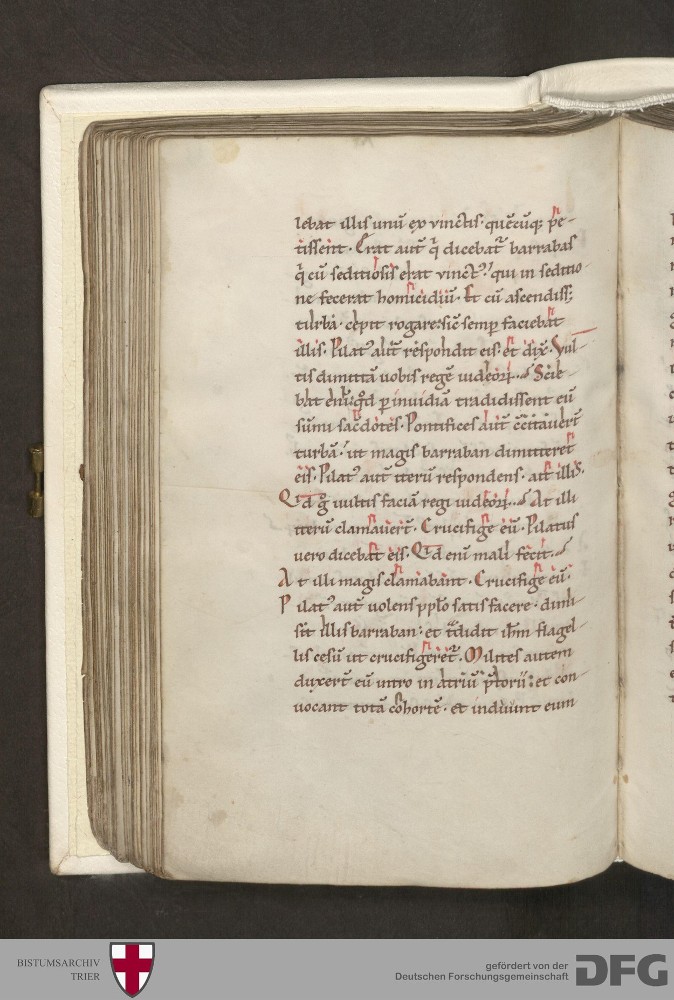 lebat illis unū ex vinctis· quēcūq; pe-
tissent· Erat aut̄ q̄ dicebat᷑ barrabas
q̄ cū seditiosis erat vinct᷒· qui in seditio-
ne fecerat homicidiū· Et cū ascendiss;
turba· cepit rogare· sic̄ semp̄ faciebat
illis· Pilat᷒ aut̄ respondit eis· et dix̄· Vul-
tis dimittā uobis regē iudeoꝝ· Scie-
bat eni· qd̄ p̄ inuidiā tradidissent eū
sūmi sac̄dotes· Pontifices aut̄ c̄citauer̄t
turbā· ut magis barraban dimitteret
eis· Pilat᷒ aut̄ iterū respondens· ait illis·
Qd̄ g̊ uultis faciā regi iudeoꝝ· At illi
iterū clamauer̄t· Crucifige eū· Pilatus
vero dicebat eis· Qd̄ eni mali fecit·
At illi magis clamabant· Crucifige eū·
Pilat᷒ aut̄ uolens pp̄lo satis facere· dimi-
sit illis barraban· et t̄didit ih̄m flagel-
lis cesū ut crucifigeret᷑· Milites autem
duxer̄t eū intro in atriū p̄torii· et con-
uocant totā cohortē· et induunt eum
BISTUMSARCHIV
TRIER
gefördert von der
Deutschen Forschungsgemeinschaft
DFG